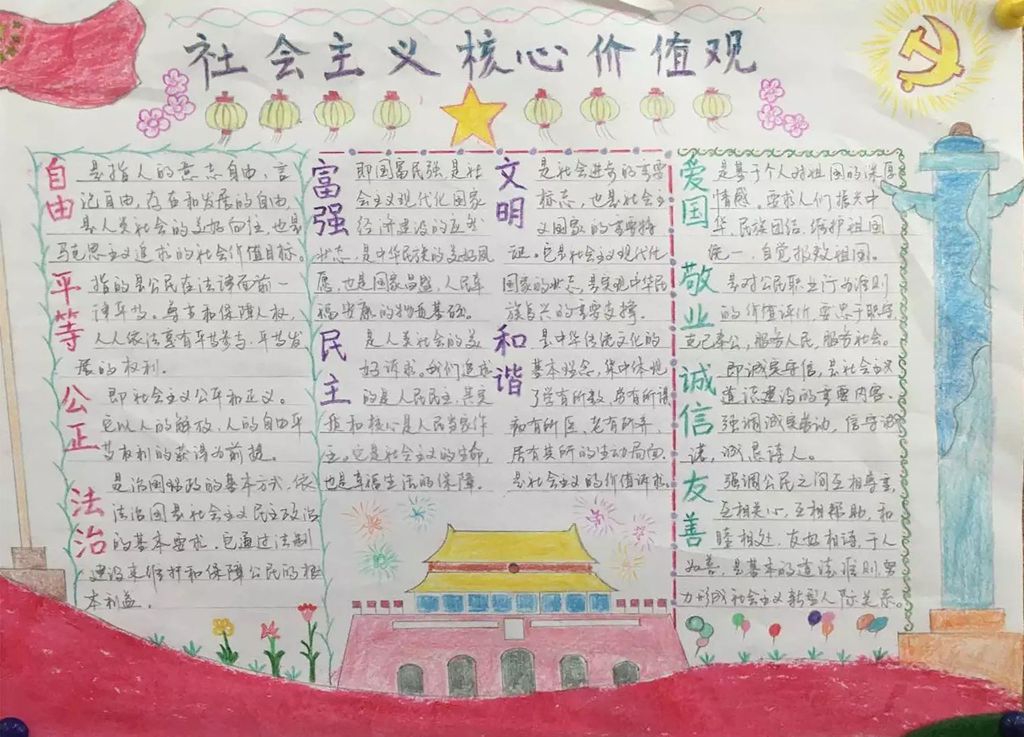 社会主义核心价值观
自由
是指人的意志自由、言
论自由、存在和发展的自由,
是人类社会的美好向往,也是
马克思主义追求的社会价值目标。
平等
指的是公民在法律面前一
律平等。尊重和保障人权,
人人依法享有平等参与、平等发
展的权利。
公正
即社会主义公平和正义。
它以人的解放、人的自由平
等权利的获得为前提。
法治
是治国理政的基本方式,依
法治国是社会主义民主政治
的基本要求,它通过法制
建设来维护和保障公民的根
本利益。
富强
即国富民强,是社
会主义现代化国家
经济建设的应然
状态,是中华民族的美好夙
愿,也是国家昌盛、人民幸
福安康的物质基础。
民主
是人类社会的美
好诉求。我们追求
的是人民民主,其实
质和核心是人民当家作
主。它是社会主义的生命,
也是幸福生活的保障。
文明
是社会进步的重要
标志,也是社会主
义国家的重要特
证。它是社会主义现代化
国家的状态,是实现中华民
族复兴的重要支撑。
和谐
是中华传统文化的
基本理念,集中体现
了学有所教、劳有所得
病有所医、老有所养、
居有其所的生动局面。
是社会主义的价值诉求。
爱国
是基于个人对祖国的深厚
情感。要求人们振兴中
华、民族团结、维护祖国
统一、自觉报效祖国。
敬业
是对公民职业行为准则
的价值评价,要忠于职守
克己奉公,服务人民,服务社会。
诚信
即诚实守信,是社会主义
道德建设的重要内容。
强调诚实劳动,信守承
诺,诚恳待人。
友善
强调公民之间互相尊重、
互相关心、互相帮助、和
睦相处、友好相待,于人
如善,是基本的道德准则,努
力形成社会主义新型人际关系。